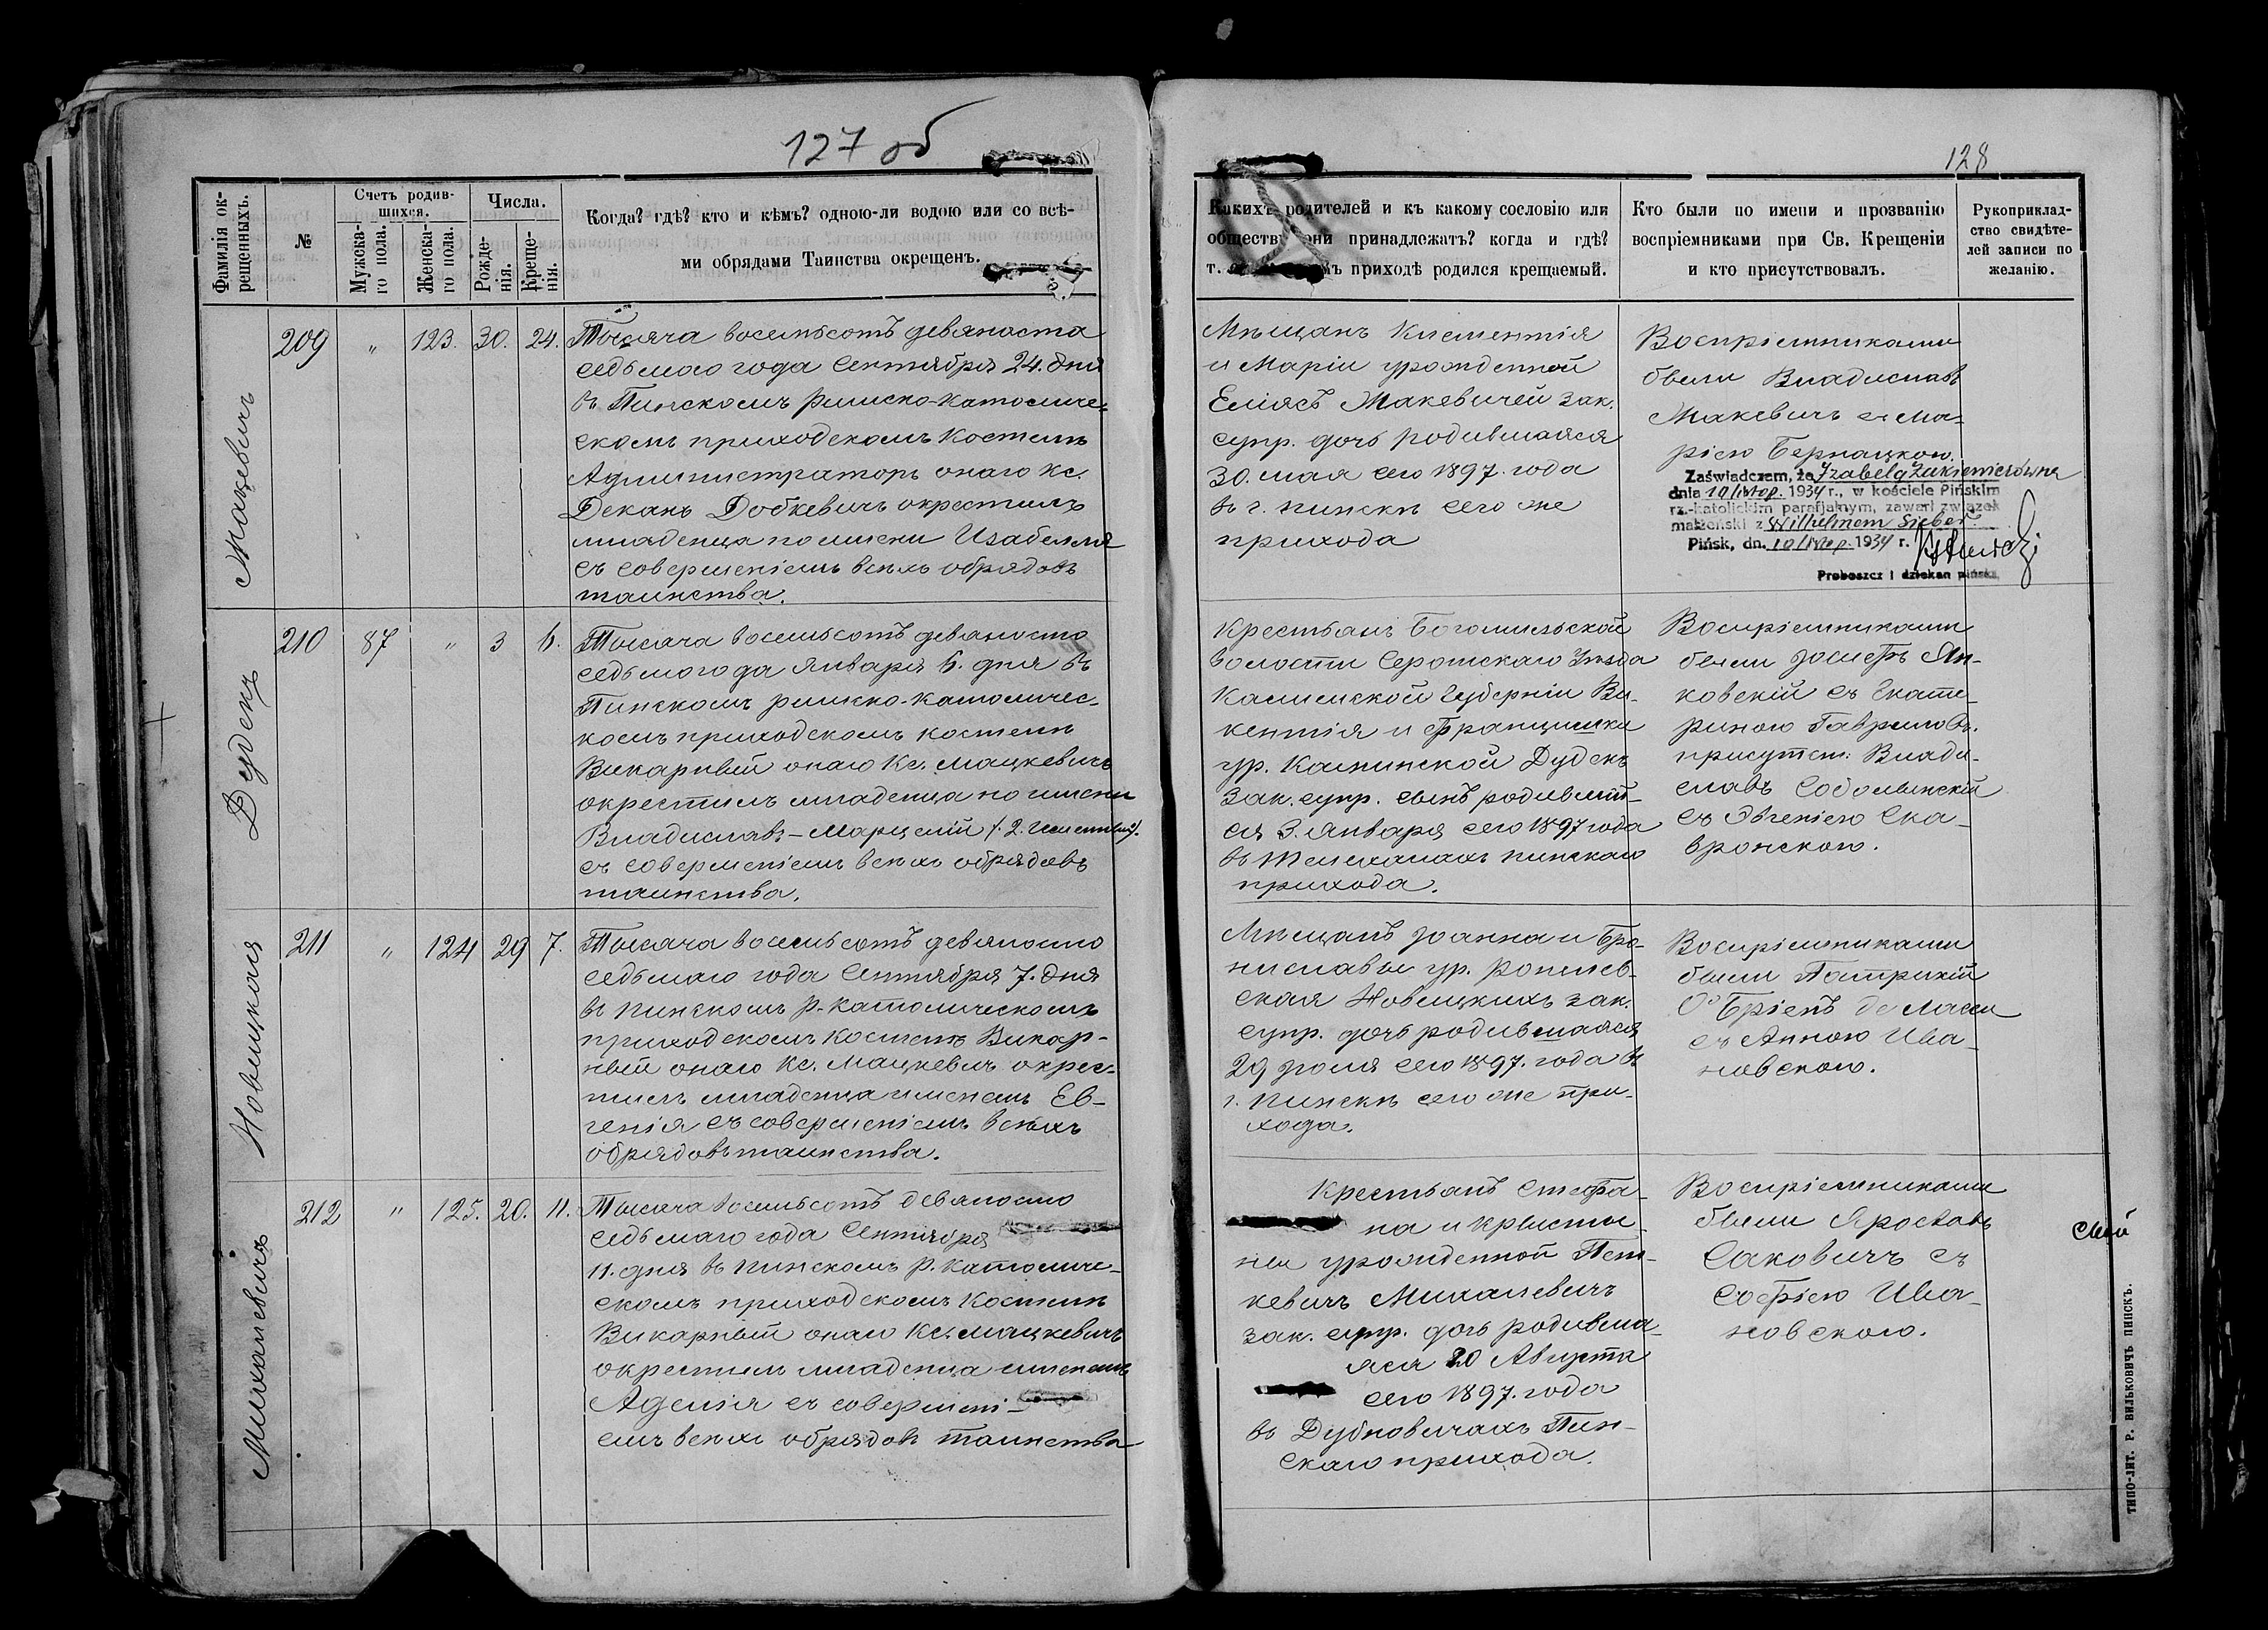 127 об
Фамилія ок-
рещенныхъ.
№
Счетъ родив-
шихся.
Мужска-
го пола.
Женска-
го пола.
Числа.
Рожде-
нія.
Креще-
нія.
Когда? гдѣ? кто и кѣмъ? одною-ли водою или со всѣ-
ми обрядами Таинства окрещенъ.
Мацевичъ
209 " 123. 30. 24.
Тысяча восемьсотъ девяноста
седьмаго года Сентября 24. дня
въ Пинскомъ Римско-Католиче-
скомъ приходскомъ костелѣ
Администраторъ онаго Кс.
Деканъ Добкевичъ окрестилъ
младенца по имени Изабелла
съ совершеніемъ всѣхъ обрядовъ
таинства.
Дудекъ
210 87 " 3 6.
Тысяча восемьсотъ девяносто
седьмого да Января 6. дня въ
Пинскомъ римско-католичес-
комъ приходскомъ костелѣ
Викарный онаго Кс. Мацкевичъ
окрестилъ младенца по имени
Владиславъ-Марцелій
съ совершеніемъ всѣхъ обрядовъ
таинства.
Новицкая
211 " 124 29 7.
Тысяча восемьсотъ девяносто
седьмаго года Сентября 7. дня
въ Пинскомъ Р.-католическомъ
приходскомъ костелѣ Викар-
ный онаго Кс. Мацкевичъ окрес-
тилъ младенца именемъ Ев-
генія съ совершеніемъ всѣхъ
обрядовъ таинства.
Михалевичъ
212 " 125. 20. 11.
Тысяча восемьсотъ девяносто
седьмаго года Сентября
11. дня въ Пинскомъ Р. Католиче-
скомъ приходскомъ костелѣ
Викарный онаго Кс. Мацкевичъ
окрестилъ младенца именемъ
Аделія съ совершені-
емъ всѣхъ обрядовъ таинства
128
Какихъ родителей и къ какому сословію или
обществу они принадлежатъ? когда и гдѣ?
т. мъ приходѣ родился крещаемый.
Кто были по имени и прозванію
воспріемниками при Св. Крещеніи
и кто присутствовалъ.
Рукоприклад-
ство свидѣте-
лей записи по
желанію.
Мѣщанъ Климентія
и Маріи урожденной
Еліясъ Макевичей зак.
супр. дочь родившаяся
30. мая сего 1897. года
въ г. Пинскѣ сего же
прихода
Воспріемниками
были Владиславъ
Макевичъ съ Ма-
ріею Бернацкою.
Zaświadczam, że Izabela Żukiewiczówna
dnia 10 listop. 1934 r., w kościele Pińskim
rz.-katolickim parafjalnym, zawarł związek
małżeński z Wilhelmem Sieber
Pińsk, dn. 10 listop. 1934 r.
Proboszcz i dziekan piński
Крестьянъ Богомильской
волости Серотскаго уѣзда
Калишской Губерніи Ви-
кентія и Францишки
ур. Калинской Дудекъ
зак. супр. сынъ родивлій-
ся 3. Января сего 1897 года
въ Телеханахъ Пинскаго
прихода.
Воспріемниками
были Іосифъ Ян-
ковскій съ Екате-
риною Гавриловъ.
присутст: Влади-
славъ Соболевскій
съ Эвгеніею Ска-
вронскою.
Мѣщанъ Іоанна и Бро-
ниславы ур. Роплев-
ская Новицкихъ зак.
супр. дочь родившаяся
29 Іюля сего 1897. года въ
г. Пинскѣ сего же при-
хода.
Воспріемниками
были Патрикій
О'Бріенъ де Ласси
съ Анною Ива-
новскою.
Крестьянъ Стефа-
на и Крысты-
ны урожденной Пет-
кевичъ Михалевичъ
зак. супр. дочь родивша-
яся 20 Августа
сего 1897. года
въ Дубновичахъ Пин-
скаго прихода.
Воспріемниками
были Ярославъ
Саковичъ съ
Софіею Ива-
новскою.
ТИПО-ЛИТ. Р. ВИЛЬКОВИЧЪ ПИНСКЪ.